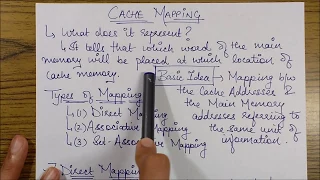 CACHE MAPPING
↳ What does it represent?
↳ It tells that which word of the main
memory will be placed at which location of
Cache memory.
Basic Idea → Mapping b/w
the Cache Addresses &
the Main Memory
addresses referring to
the same unit of
information.
Types of Mapping
↳ (1) Direct Mapping
↳ (2) Associative Mapping
↳ (3) Set-Associative Mapping
Direct Mapping